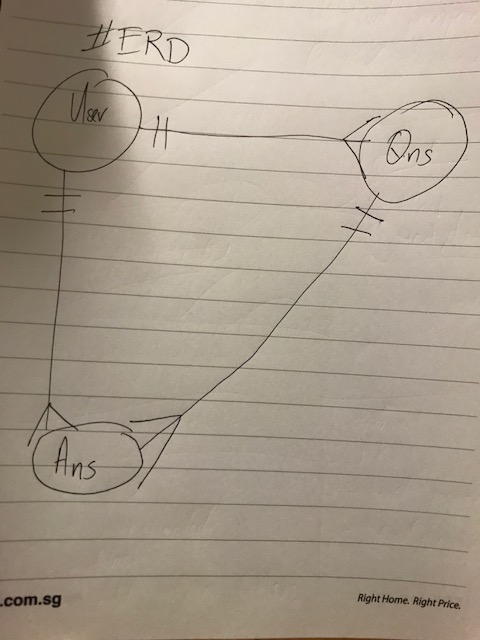 #ERD
User
Qns
Ans
.com.sg
Right Home. Right Price.